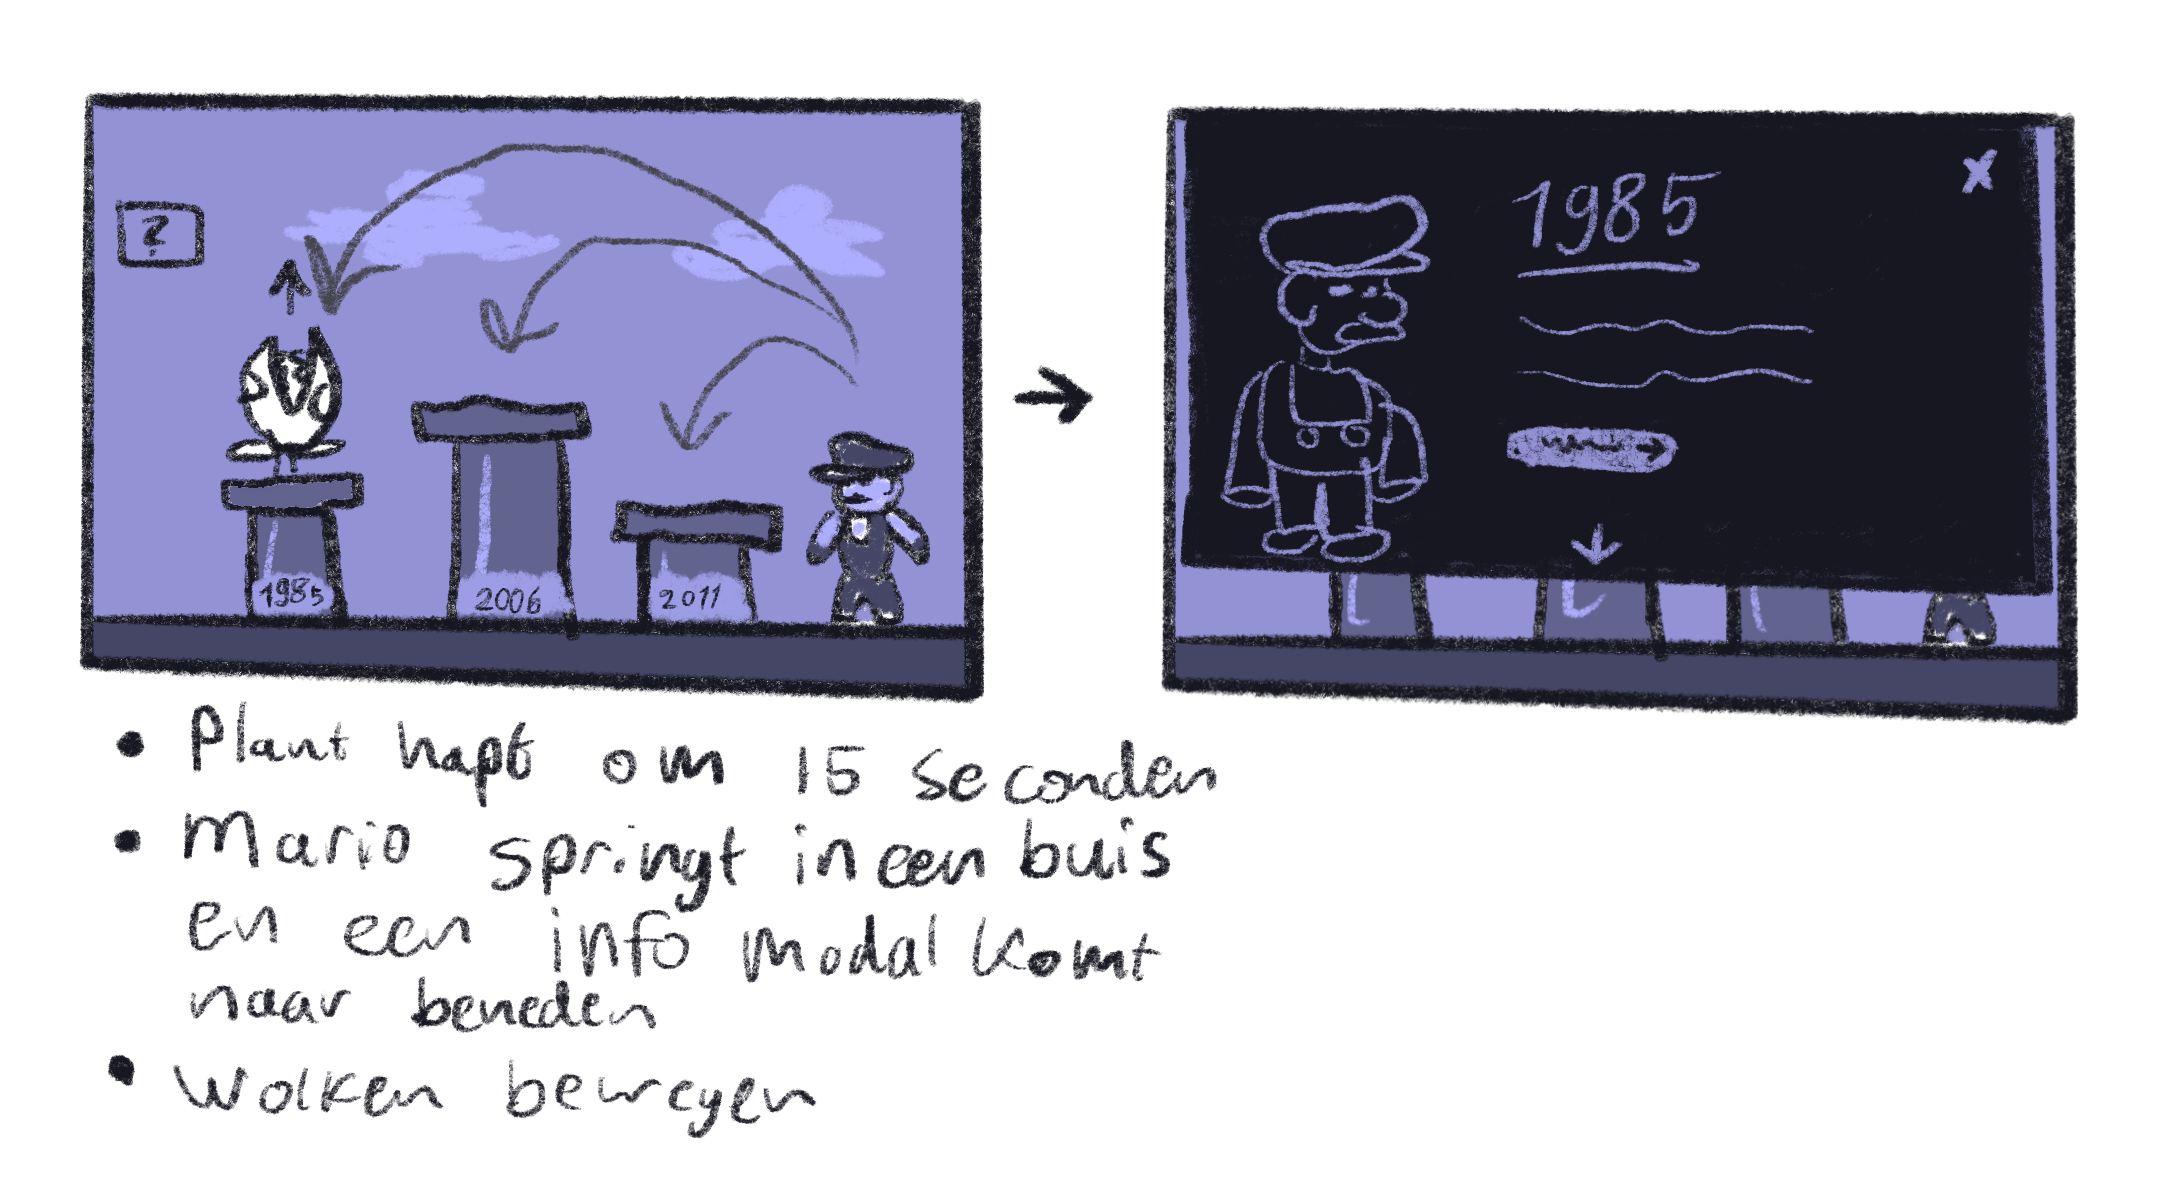 ?
1985
2006
2011
1985
x
• Plant hapt om 15 seconden
• Mario springt in een buis
en een info modal komt
naar beneden
• Wolken bewegen